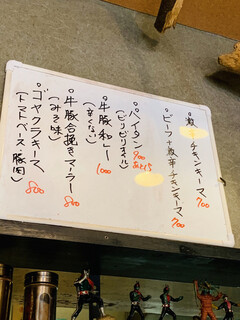 激辛チキンキーマ
700
ビーフ+激辛チキンキーマ
700
パイタン
(ピリピリオイル)
900
牛豚和レー
(辛くない)
1000
牛豚合挽きマーラー
(みそ味)
800
ゴヤクラキーマ
(トマトベース豚肉)
800